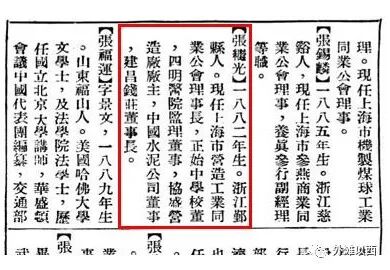 外埠。現任上海市機製煤球工業
同業公會理事。
【張錫麟】一八八五年生。浙江慈
谿人,現任上海市參燕商業同
業公會理事,養眞參行副經理
等職。
【張繼光】一八八二年生。浙江鄞
縣人。現任上海市營造工業同
業公會理事長,正始中學校董
,四明醫院監理董事,協盛營
造廠廠主,中國水泥公司董事
,建昌錢莊董事長。
【張福運】字景文,一八八九年生
。山東福山人。美國哈佛大學
文學士,及法學院法學士,歷
任國立北京大學講師,華盛頓
會議中國代表團編纂,交通部
【張
【張
外灘以西